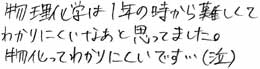 物理化学は1年の時から難しくて
わかりにくいなあと思ってました。
物化ってわかりにくいです…(泣)